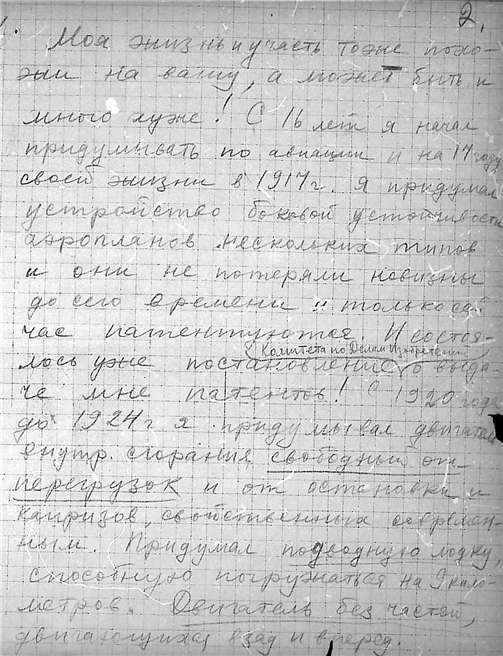 2.
Моя жизнь и участь тоже похо-
жи на вашу, а может быть и
много хуже! С 16 лет я начал
придумывать по авиации и на 17 году
своей жизни в 1917 г. я придумал
устройство боковой устойчивости
аэропланов нескольких типов
и они не потеряли новизны
до сего времени и только сей-
час патентуются и состоя-
Комитета по Делам Изобретений
лось уже постановление о выда-
че мне патентов! С 1920 года
до 1924 г я придумывал двигатель
внутр. сгорания свободный от
перегрузок и от остановки и
капризов, свойственных современ-
ным. Придумал подводную лодку,
способную погружаться на 9 кило-
метров. Двигатель без частей,
двигающихся взад и вперед.